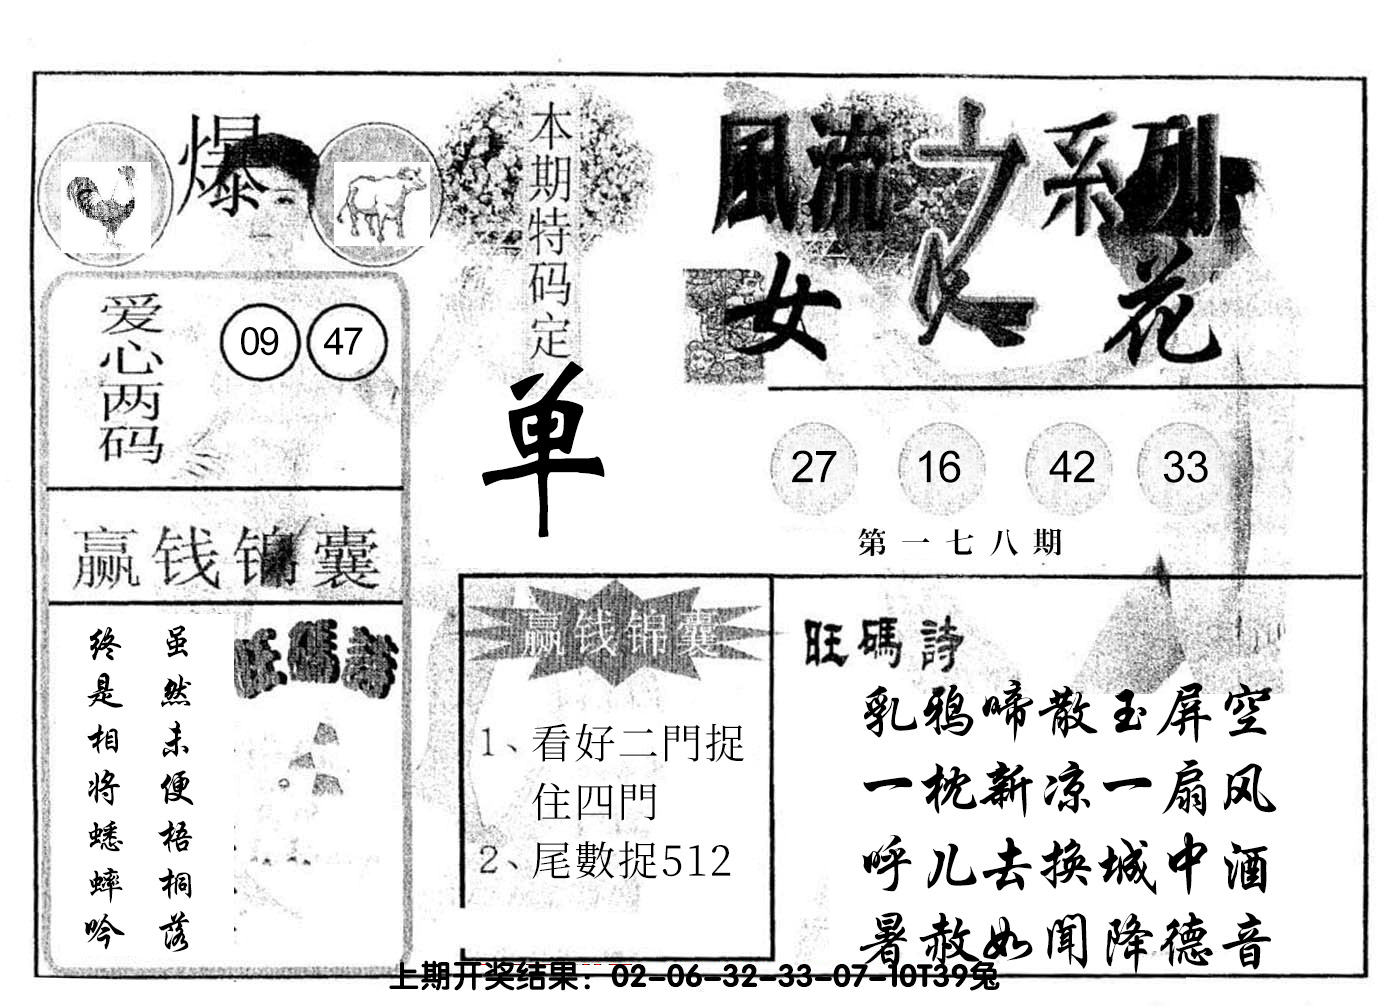 爆
本期特码定
单
爱心两码
09 47
赢钱锦囊
旺碼詩
虽然未便梧桐落
终是相将蟋蟀吟
風流之系列
女人花
27 16 42 33
第一七八期
赢钱锦囊
1、看好二門捉
住四門
2、尾數捉512
旺碼詩
乳鸦啼散玉屏空
一枕新凉一扇风
呼儿去换城中酒
暑赦如闻降德音
上期开奖结果：02-06-32-33-07-10T39兔